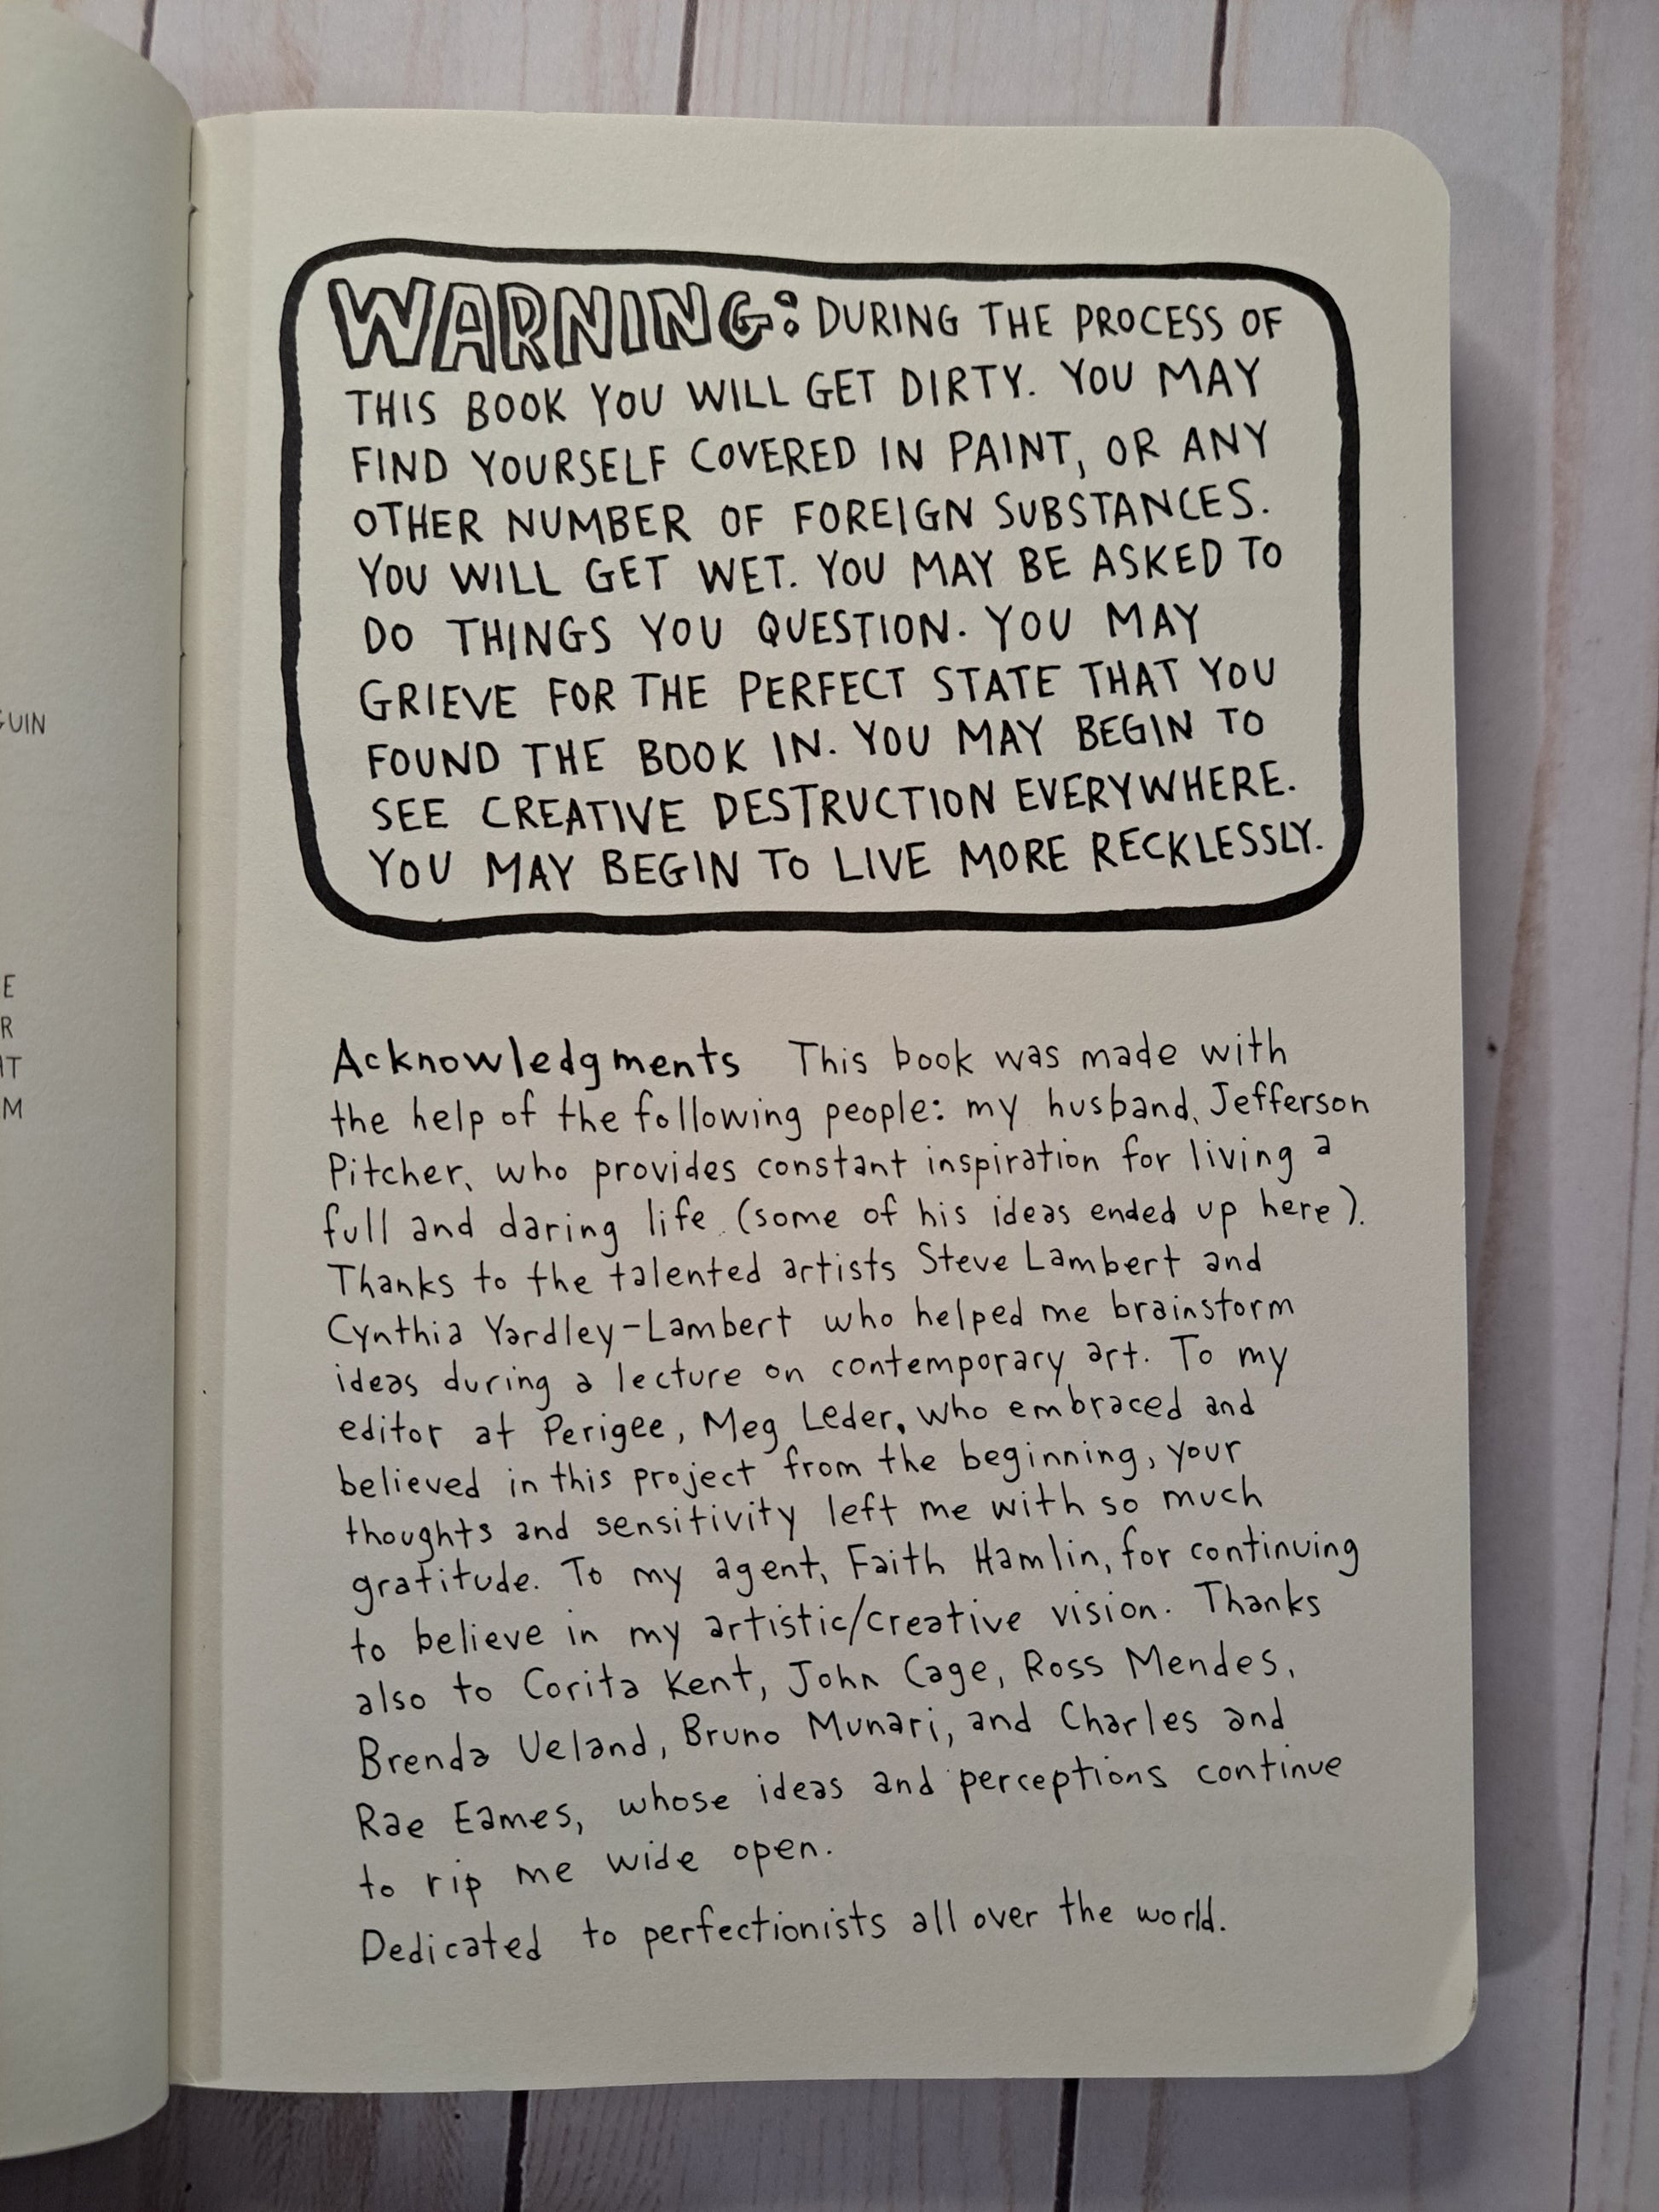 WARNING: DURING THE PROCESS OF
THIS BOOK YOU WILL GET DIRTY. YOU MAY
FIND YOURSELF COVERED IN PAINT, OR ANY
OTHER NUMBER OF FOREIGN SUBSTANCES.
YOU WILL GET WET. YOU MAY BE ASKED TO
DO THINGS YOU QUESTION. YOU MAY
GRIEVE FOR THE PERFECT STATE THAT YOU
FOUND THE BOOK IN. YOU MAY BEGIN TO
SEE CREATIVE DESTRUCTION EVERYWHERE.
YOU MAY BEGIN TO LIVE MORE RECKLESSLY.
Acknowledgments This book was made with
the help of the following people: my husband, Jefferson
Pitcher, who provides constant inspiration for living a
full and daring life (some of his ideas ended up here).
Thanks to the talented artists Steve Lambert and
Cynthia Yardley-Lambert who helped me brainstorm
ideas during a lecture on contemporary art. To my
editor at Perigee, Meg Leder, who embraced and
believed in this project from the beginning, your
thoughts and sensitivity left me with so much
gratitude. To my agent, Faith Hamlin, for continuing
to believe in my artistic/creative vision. Thanks
also to Corita Kent, John Cage, Ross Mendes,
Brenda Ueland, Bruno Munari, and Charles and
Rae Eames, whose ideas and perceptions continue
to rip me wide open.
Dedicated to perfectionists all over the world.